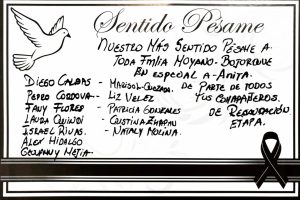 Sentido Pésame
Nuestro Más Sentido Pésame A
Toda Fmlia Moyano-Bojorque
En especial a-Anita.
Diego Caldas - Marisol Quezada. de parte de todos
Pedro Cordova - Liz Velez tus compañeros.
Tany Flores - Patricia Gonzales de Recaudación
Laura Quindi - Cristina Zhapan Etapa.
Israel Rivas. - Nataly Molina.
Alex Hidalgo
Geovanny Mejia